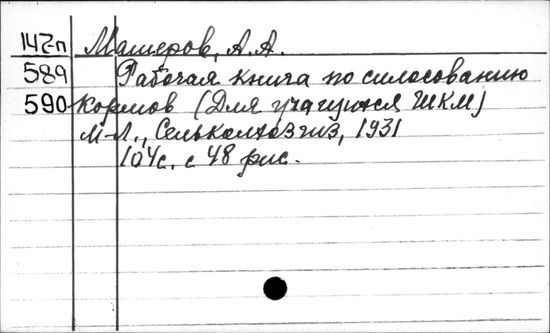 147-п Машеров, А.А.
589 Рабочая книга по силосованию
590 кормов (Для учащихся ШКМ)
М-Л., Сельколхозгиз, 1931
104с. с 48 рис.